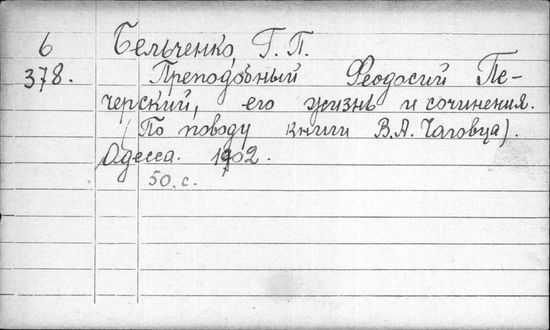 6 Бельченко, Г. П.
378. Преподобный Феодосий Пе-
черский, его жизнь и сочинения.
(По поводу книги В.А. Чаговца).
Одесса. 1902.
50. с.